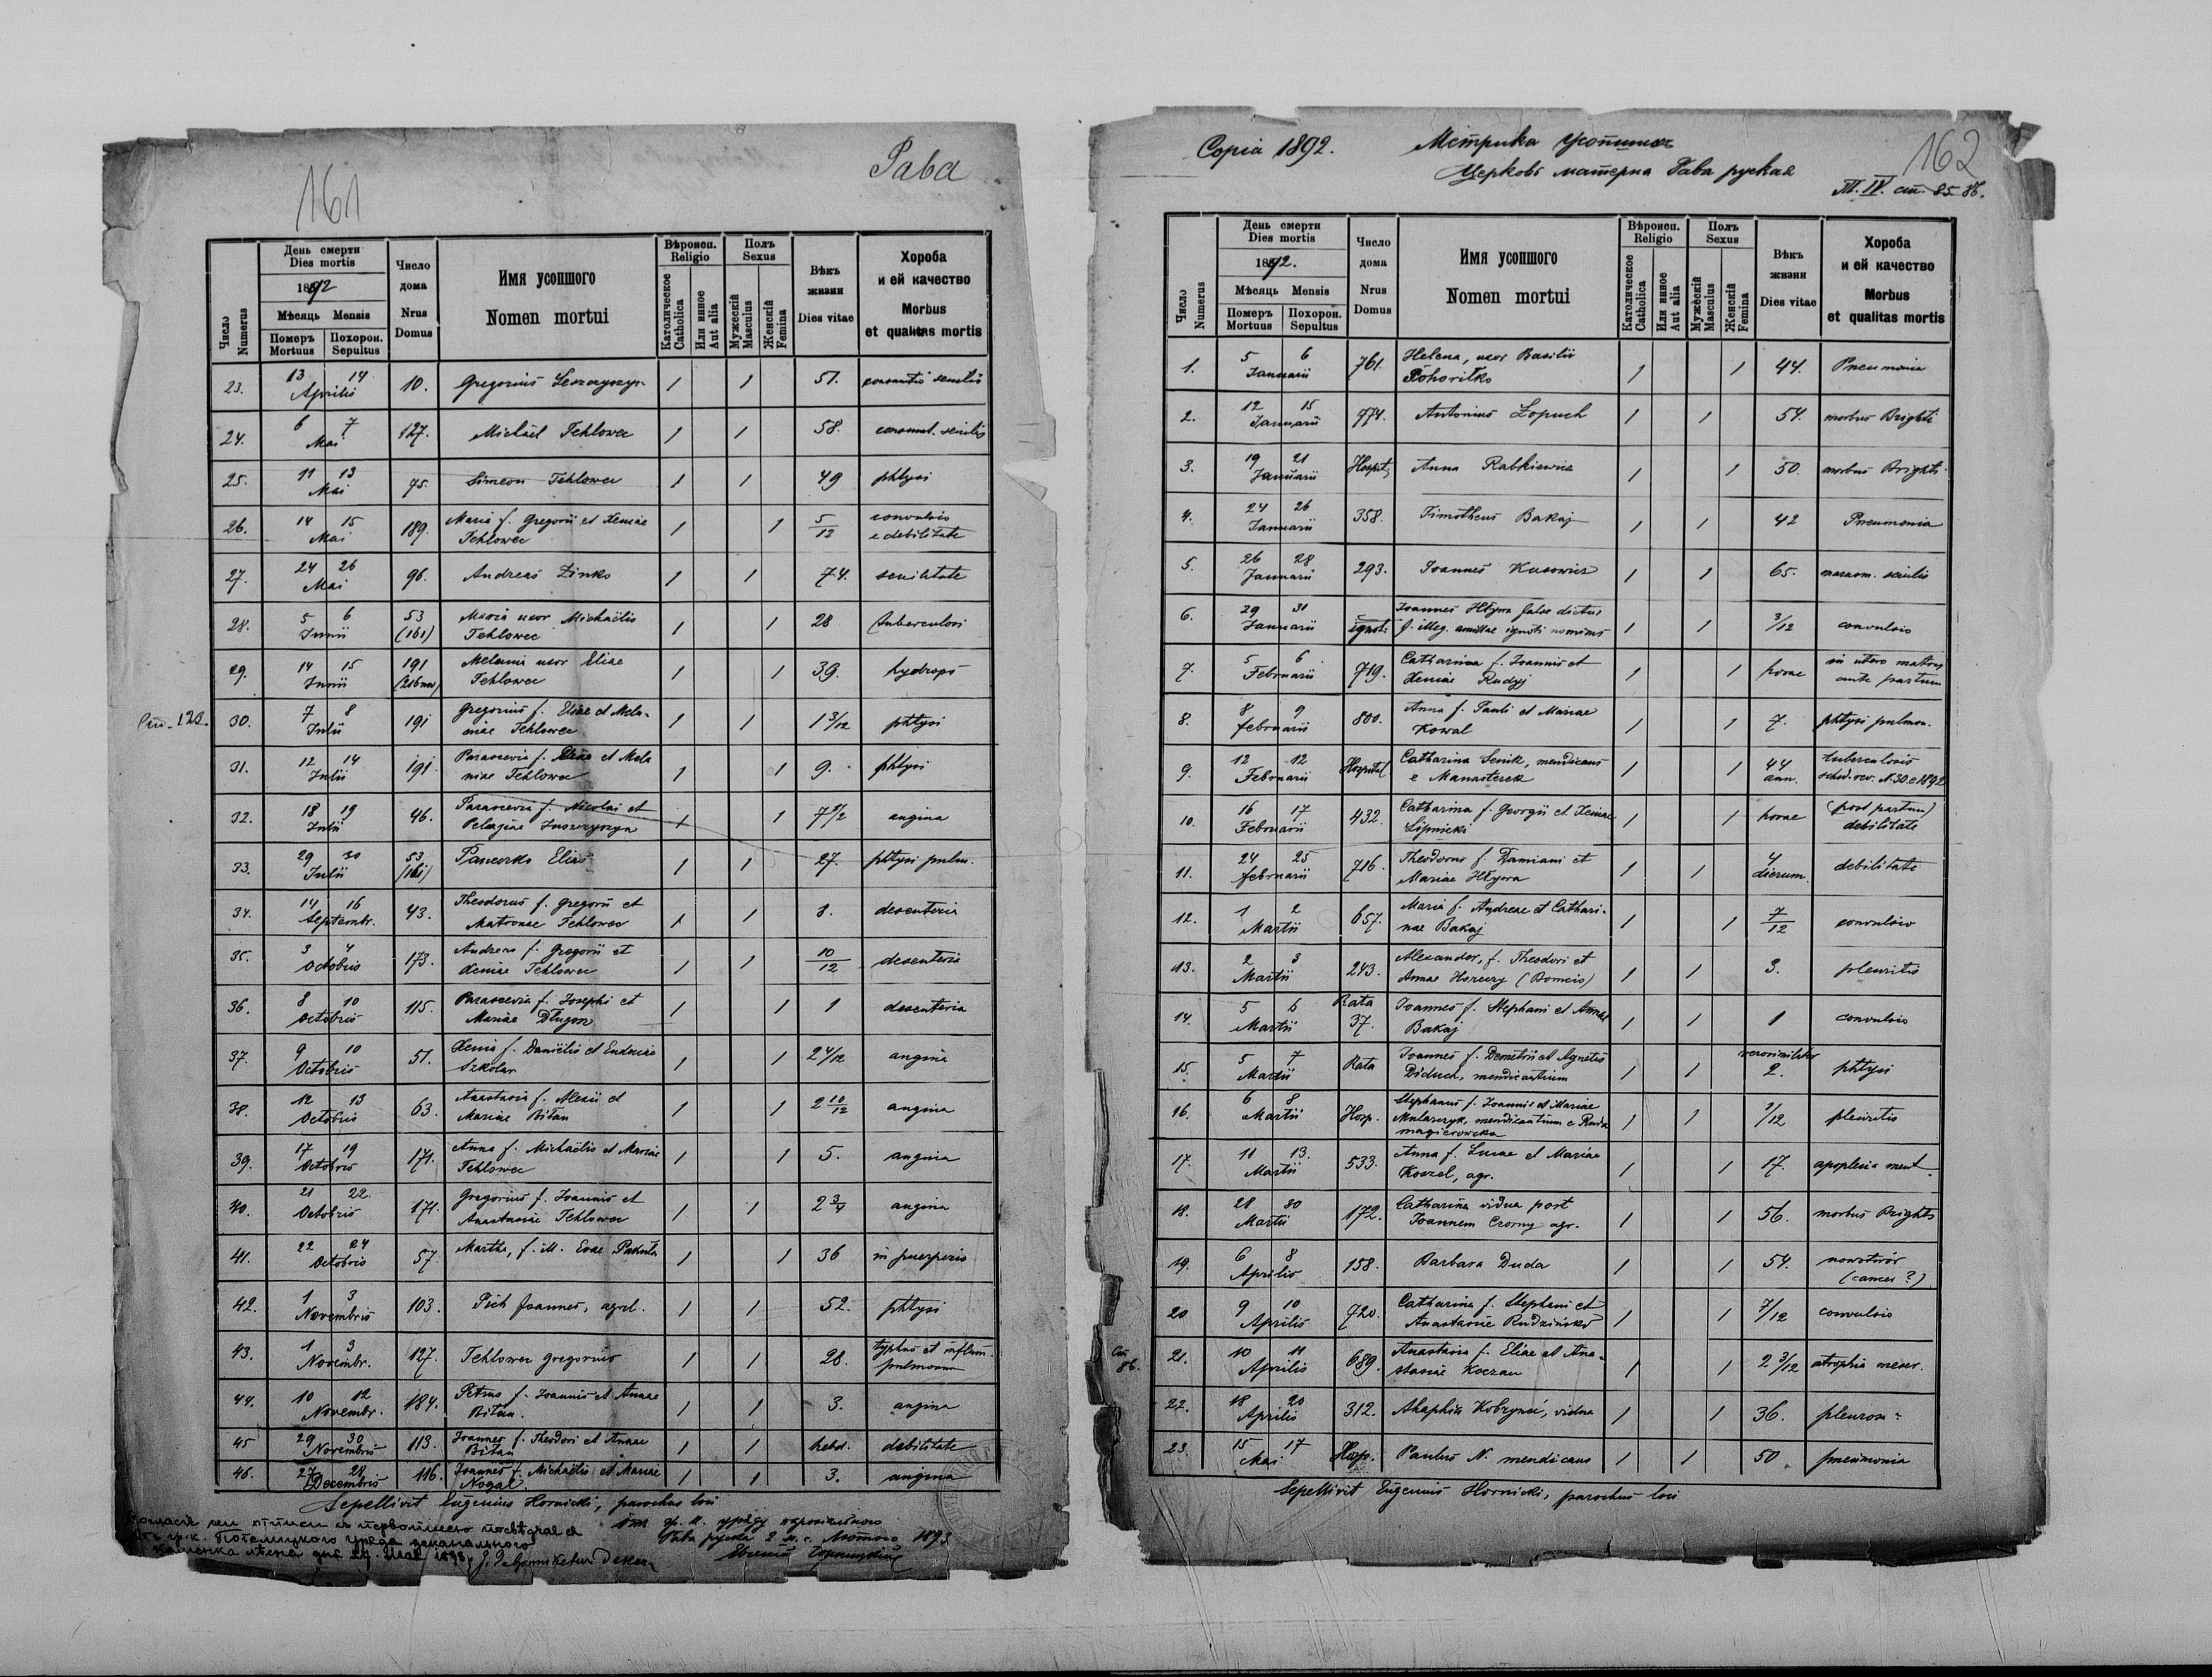 161
Рава
День смерти
Dies mortis
1892
Мѣсяць Mensis
Померъ Похорон.
Mortuus Sepultus
Число
Numerus
Число
дома
Nrus
Domus
Имя усопшого
Nomen mortui
Вѣроисп.
Religio
Католическое
Catholica
Или инное
Aut alia
Полъ
Sexus
Мужескій
Masculus
Женскій
Femina
Вѣкъ
жизни
Dies vitae
Хороба
и ей качество
Morbus
et qualitas mortis
23. 13 14 Aprilis 10. Gregorius 1 1 51. senilis
24. 6 7 Mai 127. Michaël Tehlowec 1 1 58. senilis
25. 11 13 Mai 75. Simeon Tehlowec 1 1 49 phtysi
26. 14 15 Mai 189. Maria f. Gregorii et Xeniae
Tehlowec 1 1 5/12 convulsio
e debilitate
27. 24 26 Mai 96. Andreas Zinko 1 1 74. senilitate
28. 5 6 Junii 53 (161) Maria uxor Michaëlis
Tehlowec 1 1 28 tuberculosi
29. 14 15 Junii 191 Melania uxor Eliae
Tehlowec 1 1 39. hydrops
30. 7 8 Julii 191 Gregorius f. Eliae et Mela-
niae Tehlowec 1 1 1 3/12 phtysi
31. 12 14 Julii 191 Parascevia f. Eliae et Mela
niae Tehlowec 1 1 9. phtysi
32. 18 19 Julii 46. Parascevia f. Nicolai et
Pelagiae 1 1 7 1/2 angina
33. 29 30 Julii 53 (161) Elias 1 1 27. phtysi pulm.
34. 14 16 Septembr. 43. Theodorus f. Gregorii et
Matronae Tehlowec 1 1 8. desenteria
35. 3 4 Octobris 173. Andreas f. Gregorii et
Xeniae Tehlowec 1 1 10/12 desenteria
36. 8 10 Octobris 115. Parascevia f. Josephi et
Mariae Długosz 1 1 1 desenteria
37. 9 10 Octobris 51. Xenia f. Daniëlis et Eudociae
Szkolar 1 1 2 4/12 angina
38. 12 13 Octobris 63. Anastasia f. Alexii et
Mariae Bitan 1 1 2 10/12 angina
39. 17 19 Octobris 171. Anna f. Michaëlis et Mariae
Tehlowec 1 1 5. angina
40. 21 22. Octobris 171. Gregorius f. Joannis et
Anastasiae Tehlowec 1 1 2 3/4 angina
41. 22 24 Octobris 57. Martha, f. ill. Evae 1 1 36 in puerperio
42. 1 3 Novembris 103. Pich Joannes, agricol. 1 1 52. phtysi
43. 1 3 Novembr. 127. Tehlowec Gregorius 1 1 28. typhus et inflam.
pulmonum
44. 10 12 Novembr. 184. Petrus f. Joannis et Annae
Bitan. 1 1 3. angina
45 29 30 Novembris 113. Joannes f. Theodori et Annae
Bitan 1 1 hebd. debilitate
46. 27 28 Decembris 116. Joannes f. Michaëlis et Mariae
Nogal. 1 1 3. angina
Sepellivit Eugenius Hornicki, parochus loci
Рава руска 2 1893
162
Copia 1892. Метрика
Церковь матерна Рава руская
Т. IV. ст. 85. 86.
День смерти
Dies mortis
1892.
Мѣсяць Mensis
Померъ Похорон.
Mortuus Sepultus
Число
Numerus
Число
дома
Nrus
Domus
Имя усопшого
Nomen mortui
Вѣроисп.
Religio
Католическое
Catholica
Или инное
Aut alia
Полъ
Sexus
Мужескій
Masculus
Женскій
Femina
Вѣкъ
жизни
Dies vitae
Хороба
и ей качество
Morbus
et qualitas mortis
1. 5 6 Januarii 761. Helena, uxor Basilii
Pohoriłko 1 1 44. Pneumonia
2. 12 15 Januarii 774. Antonius Łopuch 1 1 54. morbus Brighti
3. 19 21 Januarii Hospit. Anna Rabkiewicz 1 1 50. morbus Brighti
4. 24 26 Januarii 358. Timotheus Bakaj 1 1 42 Pneumonia
5. 26 28 Januarii 293. Joannes Kusowicz 1 1 65. marasm. senilis
6. 29 31 Januarii ignot. Joannes false dictus
f. illeg. ignoti nominis 1 1 3/12 convulsio
7. 5 6 Februarii 719. Catharina f. Joannis et
Xeniae Rudyj 1 1 horae in utero matris
ante partum
8. 8 9 februarii 800. Anna f. Pauli et Mariae
Kowal 1 1 7. phtysi pulmon.
9. 12 12 Februarii Hospital Catharina Senik, mendicans
e Manasterek 1 1 44
ann. tuberculosis
sched. rev. N. 30. e 1892
10. 16 17 Februarii 432. Catharina f. Georgii et Xeniae
Lipnicki 1 1 horae (post partum)
debilitate
11. 24 25 februarii 716. Theodorus f. Damiani et
Mariae 1 1 4
dierum. debilitate
12. 1 2 Martii 657. Maria f. Andreae et Cathari-
nae Bakaj 1 1 7/12 convulsio
13. 2 3 Martii 243. Alexander, f. Theodori et
Annae 1 1 3. pleuritis
14. 5 6 Martii Rata
37. Joannes f. Stephani et Annae
Bakaj 1 1 1 convulsio
15. 5 7 Martii Rata Joannes f. Demetrii et Agnetis
Diduch, mendicantium 1 1 verosimiliter
2. phtysi
16. 6 8 Martii Hosp. Stephanus f. Joannis et Mariae
Mularczyk, mendicantium e Ruda
magierowska 1 1 1/12 pleuritis
17. 11 13. Martii 533. Anna f. Lucae et Mariae
Koczel, agr. 1 1 17. apoplexia
18. 28 30 Martii 172. Catharina vidua post
Joannem Czorny agr. 1 1 56. morbus Brighti
19. 6 8 Aprilis 158. Barbara Duda 1 1 54. nowotwór
(cancer ?)
20 9 10 Aprilis 720. Catharina f. Stephani et
Anastasiae Rudzińsko 1 1 7/12 convulsio
Ст. 86. 21. 10 11 Aprilis 689. Anastasia f. Eliae et Ana-
stasiae Koczan 1 1 2 3/12 atrophia meser.
22. 18 20 Aprilis 312. Ahaphia, vidua 1 1 36.
23. 15 17 Mai Hosp. Paulus N. mendicans 1 1 50 pneumonia
Sepellivit Eugenius Hornicki, parochus loci